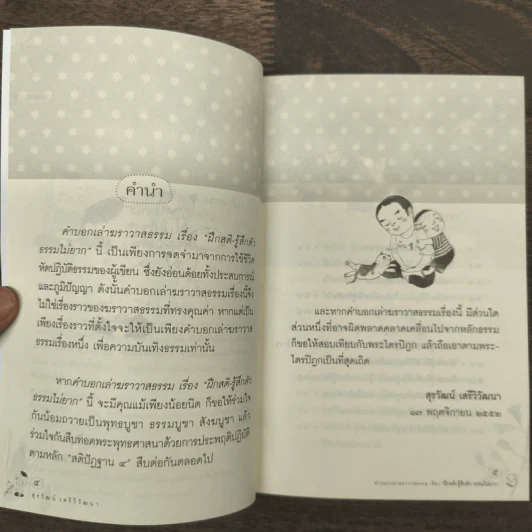 คำนำ
คำบอกเล่าฆราวาสธรรม เรื่อง "ฝึกสติ-รู้สึกตัว
ธรรมไม่ยาก" นี้ เป็นเพียงการจดจำมาจากการใช้ชีวิต
หัดปฏิบัติธรรมของผู้เขียน ซึ่งยังอ่อนด้อยทั้งประสบการณ์
และภูมิปัญญา ดังนั้นคำบอกเล่าฆราวาสธรรมเรื่องนี้จึง
ไม่ใช่เรื่องราวของฆราวาสธรรมที่ทรงคุณค่า หากแต่เป็น
เพียงเรื่องราวที่ตั้งใจจะให้เป็นเพียงคำบอกเล่าฆราวาส
ธรรมเรื่องหนึ่ง เพื่อความบันเทิงธรรมเท่านั้น
หากคำบอกเล่าฆราวาสธรรม เรื่อง "ฝึกสติ-รู้สึกตัว
ธรรมไม่ยาก" นี้ จะมีคุณแม้เพียงน้อยนิด ก็ขอให้ร่วมใจ
กันน้อมถวายเป็นพุทธบูชา ธรรมบูชา สังฆบูชา แล้ว
ร่วมใจกันสืบทอดพระพุทธศาสนาด้วยการประพฤติปฏิบัติ
ตามหลัก "สติปัฏฐาน ๔" สืบต่อกันตลอดไป
๔
สุรวัฒน์ เสรีวิวัฒนา
และหากคำบอกเล่าฆราวาสธรรมเรื่องนี้ มีส่วนใด
ส่วนหนึ่งที่อาจผิดพลาดคลาดเคลื่อนไปจากหลักธรรม
ก็ขอให้สอบเทียบกับพระไตรปิฎก แล้วถือเอาตามพระ-
ไตรปิฎกเป็นที่สุดเถิด
สุรวัฒน์ เสรีวิวัฒนา
๑๗ พฤศจิกายน ๒๕๕๒
๕
คำบอกเล่าฆราวาสธรรม เรื่อง "ฝึกสติ-รู้สึกตัว ธรรมไม่ยาก"